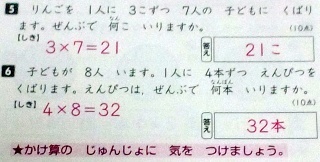 5 りんごを 1人に 3こずつ 7人の 子どもに くばり
ます。ぜんぶで 何こ いりますか。
なん
(10点)
【しき】
3×7=21
答え
21こ
6 子どもが 8人 います。1人に 4本ずつ えんぴつを
くばります。えんぴつは、ぜんぶで 何本 いりますか。
なんぼん
(10点)
【しき】
4×8=32
答え
32本
★かけ算の じゅんじょに 気を つけましょう。